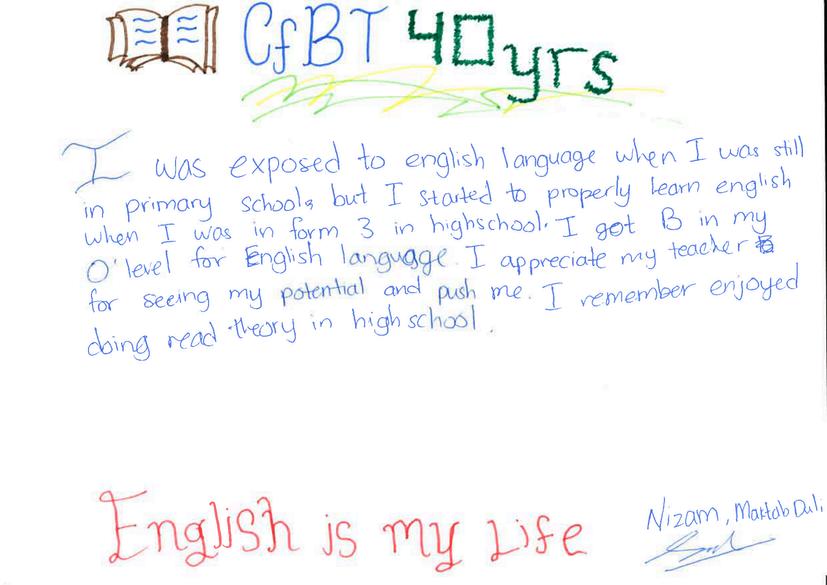 CfBT 40 yrs
I was exposed to english language when I was still
in primary school, but I started to properly learn english
when I was in form 3 in highschool. I got B in my
O'level for English language. I appreciate my teacher
for seeing my potential and push me. I remember enjoyed
doing read theory in high school.
English is my Life
Nizam, Maktab Duli